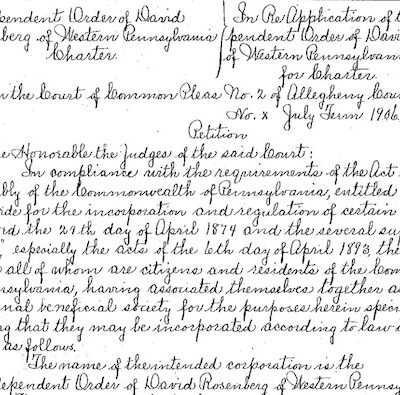 ependent Order of David
berg of Western Pennsylvania
Charter.
In Re Application of t
pendent Order of Davi
of Western Pennsylvan
for Charter.
n the Court of Common Pleas No. 2 of Allegheny Cou
No. x July Term 1906
Petition
e Honorable the Judges of the said Court;
In compliance with the requirements of the Act
bly of the Commonwealth of Pennsylvania, entitled
ide for the incorporation and regulation of certain
d the 29th day of April 1874 and the several su
" especially the acts of the 6th day of April 1893, the
all of whom are citizens and residents of the Com
nsylvania, having associated themselves together a
nal beneficial society for the purposes herein speci
g that they may be incorporated according to law
as follows.
The name of the intended corporation is the
ependent Order of David Rosenberg of Western Penns